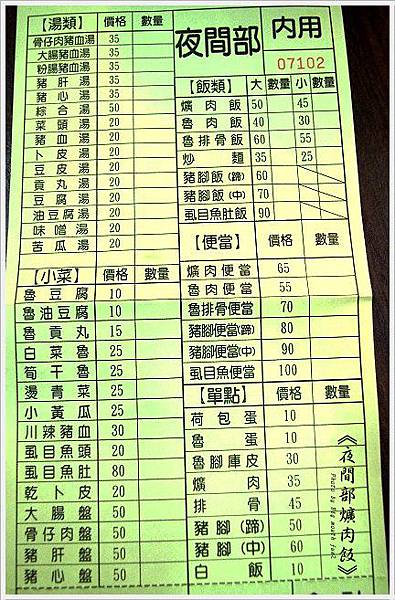 夜間部 內用
07102
【湯類】 價格 數量
骨仔肉豬血湯 35
大腸豬血湯 35
粉腸豬血湯 35
豬肝湯 35
豬心湯 35
綜合湯 50
菜頭湯 20
豬血湯 20
卜皮湯 20
豆皮湯 20
貢丸湯 20
豆腐湯 20
油豆腐湯 20
味噌湯 20
苦瓜湯 20
【小菜】 價格 數量
魯豆腐 10
魯油豆腐 10
魯貢丸 15
白菜魯 25
筍干魯 25
燙青菜 25
小黃瓜 25
川辣豬血 30
虱目魚頭 20
虱目魚肚 80
乾卜皮 20
大腸盤 50
骨仔肉盤 50
豬肝盤 50
豬心盤 50
【飯類】 大 數量 小 數量
爌肉飯 50 45
魯肉飯 40 30
魯排骨飯 60 55
炒麵 35 25
豬腳飯(蹄) 60
豬腳飯(中) 70
虱目魚肚飯 90
【便當】 價格 數量
爌肉便當 65
魯肉便當 55
魯排骨便當 70
豬腳便當(蹄) 80
豬腳便當(中) 90
虱目魚便當 100
【單點】 價格 數量
荷包蛋 10
魯蛋 10
魯腳庫皮 30
爌肉 35
排骨 45
豬腳(蹄) 50
豬腳(中) 60
白飯 10
《夜間部爌肉飯》